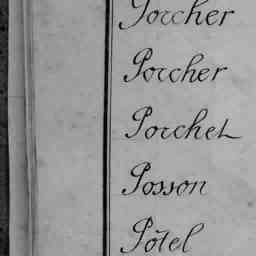 Porcher
Porcher
Porchet
Posson
Pôtel